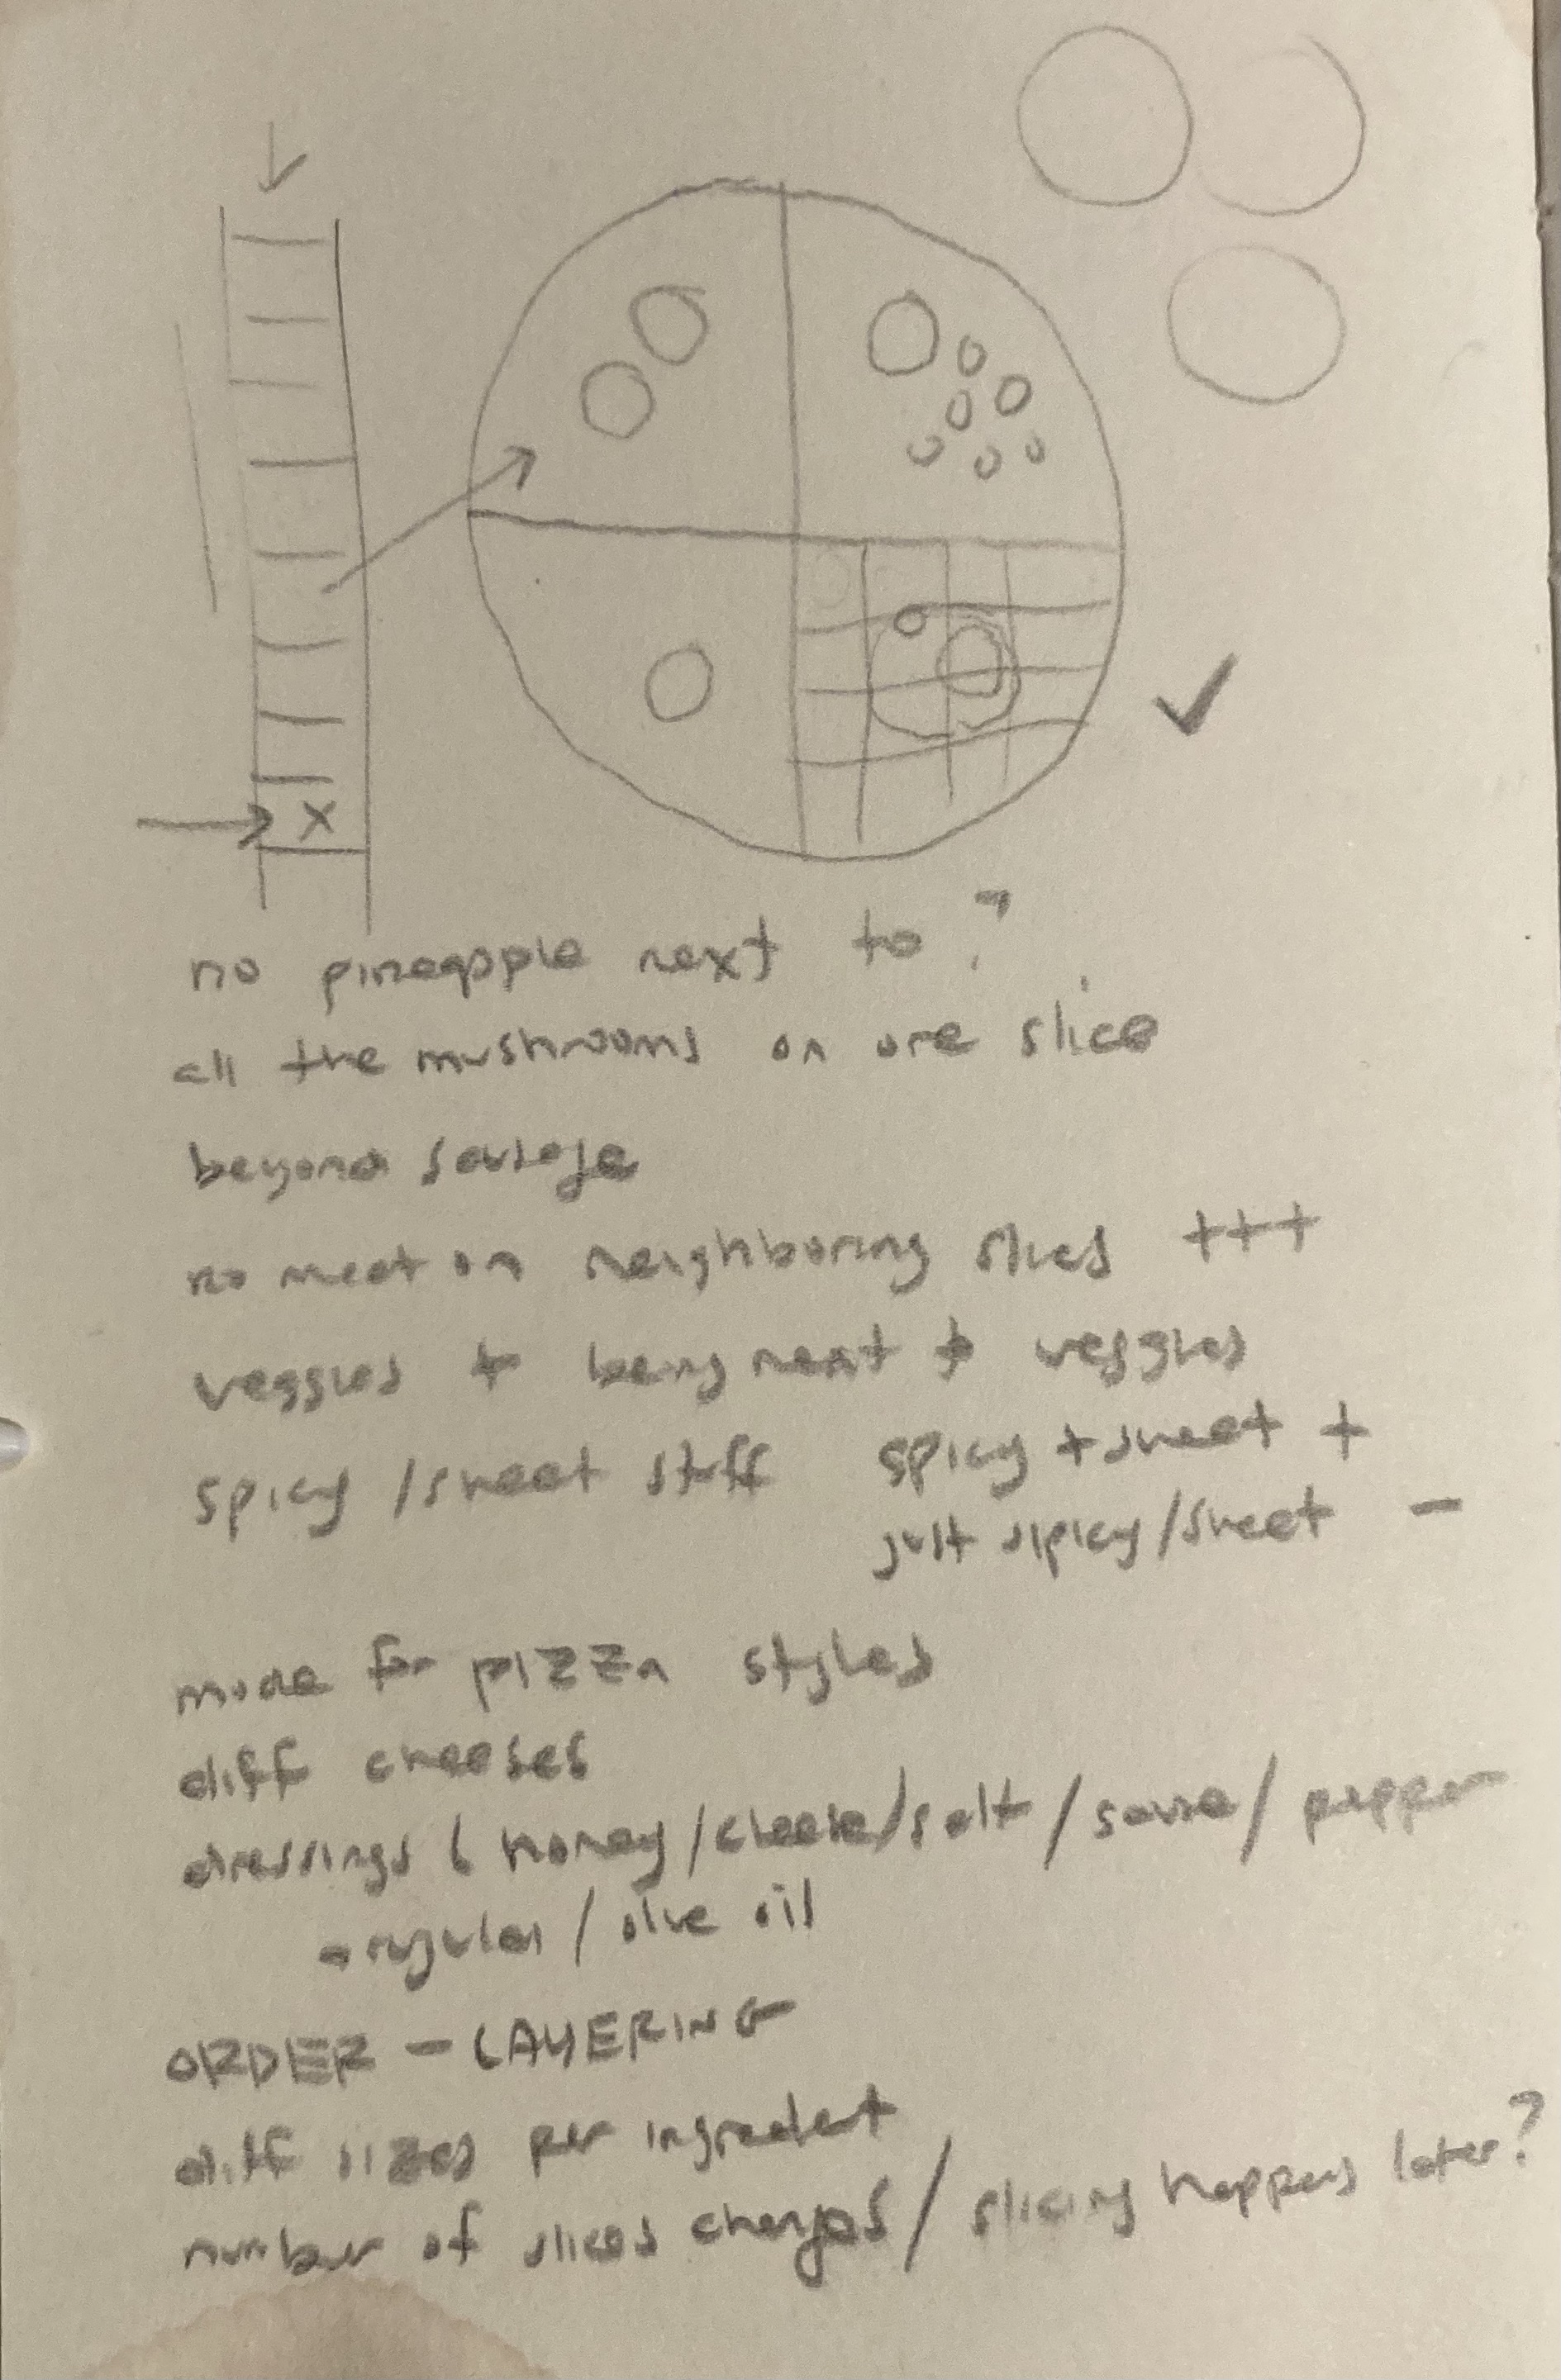 x
no pineapple next to ?
all the mushrooms on one slice
beyond sausage
no meat on neighboring slices +++
veggies + being next to veggies
spicy / sweet stuff spicy + sweet +
just spicy / sweet -
mode for pizza styles
diff cheeses
dressings ( honey / cheese / salt / sauce / pepper
arugula / olive oil
ORDER - LAYERING
diff sizes per ingredient
number of slices changes / slicing happens later?